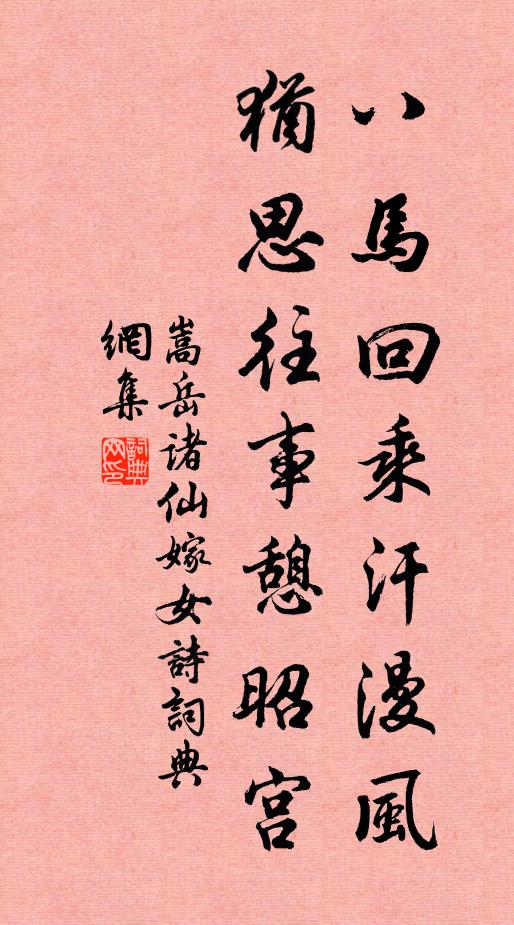 八馬回乘汗漫風
猶思往事憩昭宮
嵩岳诸仙嫁女詩詞典
網集
詞典网印